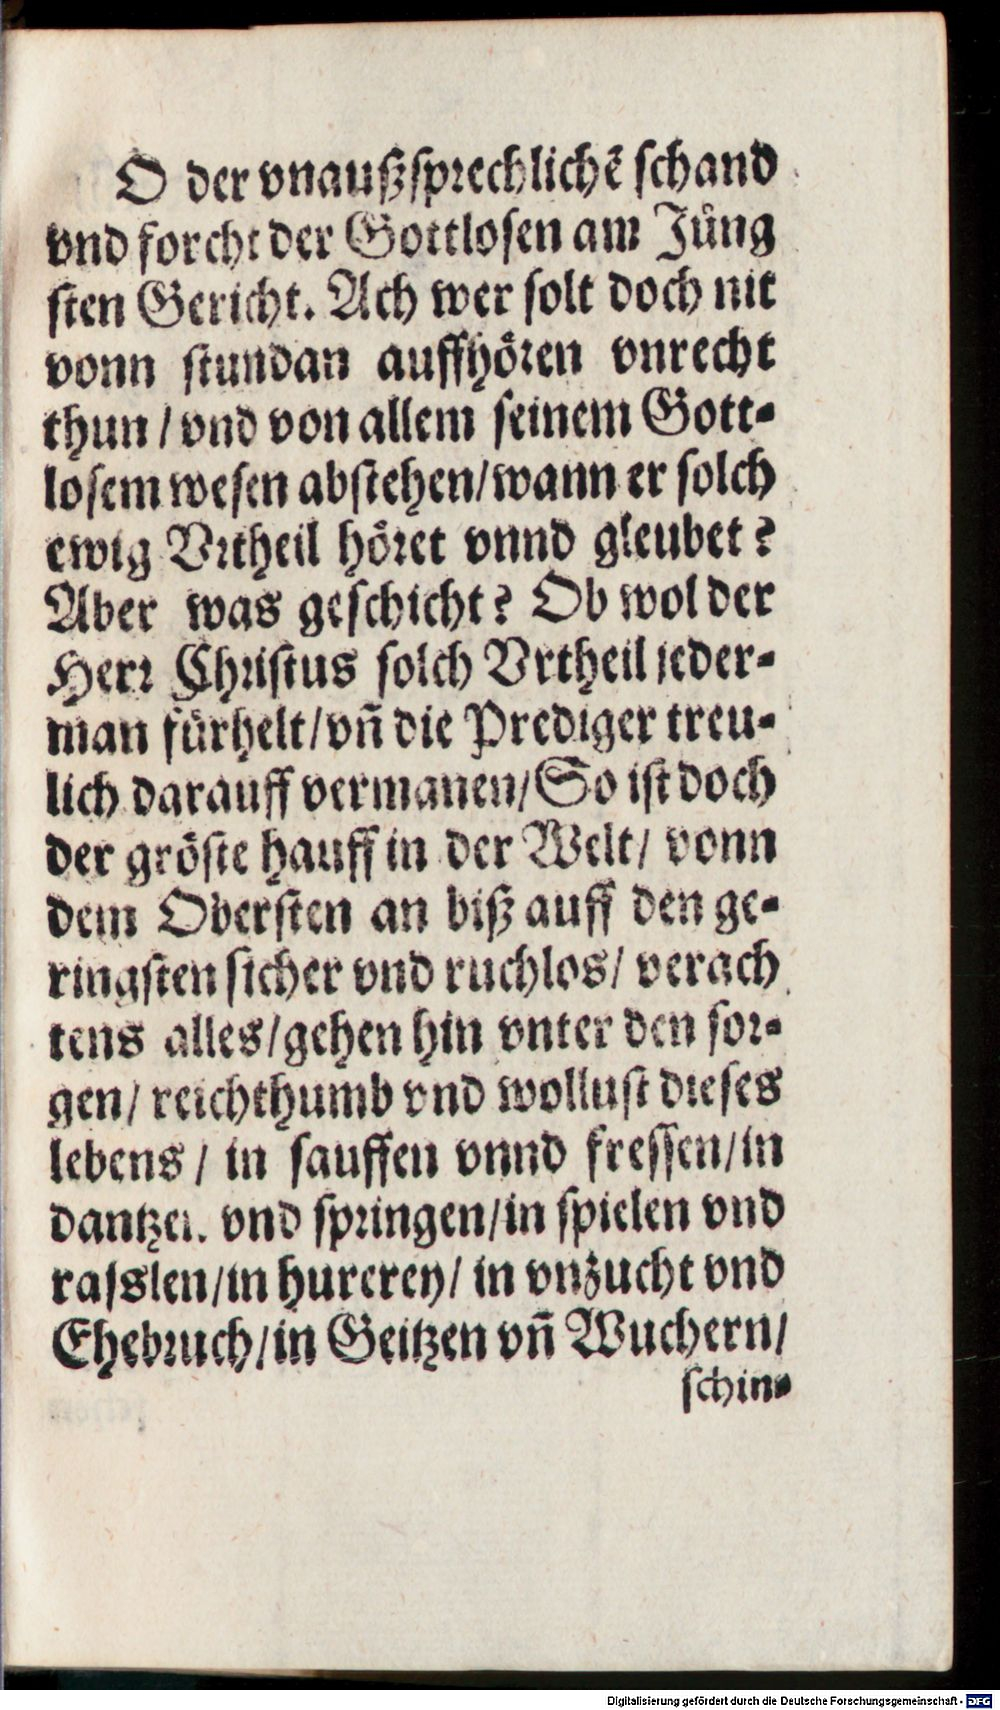 O der vnaußsprechlichē schand
vnd forcht der Gottlosen am Jüng
sten Gericht. Ach wer solt doch nit
vonn stundan auffhören vnrecht
thun / vnd von allem seinem Gott-
losem wesen abstehen/wann er solch
ewig Vrtheil höret vnnd gleubet?
Aber was geschicht? Ob wol der
Herr Christus solch Vrtheil jeder-
man fürhelt/vñ die Prediger treu-
lich darauff vermanen/So ist doch
der gröste hauff in der Welt/ vonn
dem Obersten an biß auff den ge-
ringsten sicher vnd ruchlos/ verach
tens alles/gehen hin vnter den sor-
gen/ reichthumb vnd wollust dieses
lebens / in sauffen vnnd fressen/in
dantzen vnd springen/in spielen vnd
rasslen/in hurerey/ in vnzucht vnd
Ehebruch/in Geitzen vñ Wuchern/
schin-
Digitalisierung gefördert durch die Deutsche Forschungsgemeinschaft - DFG